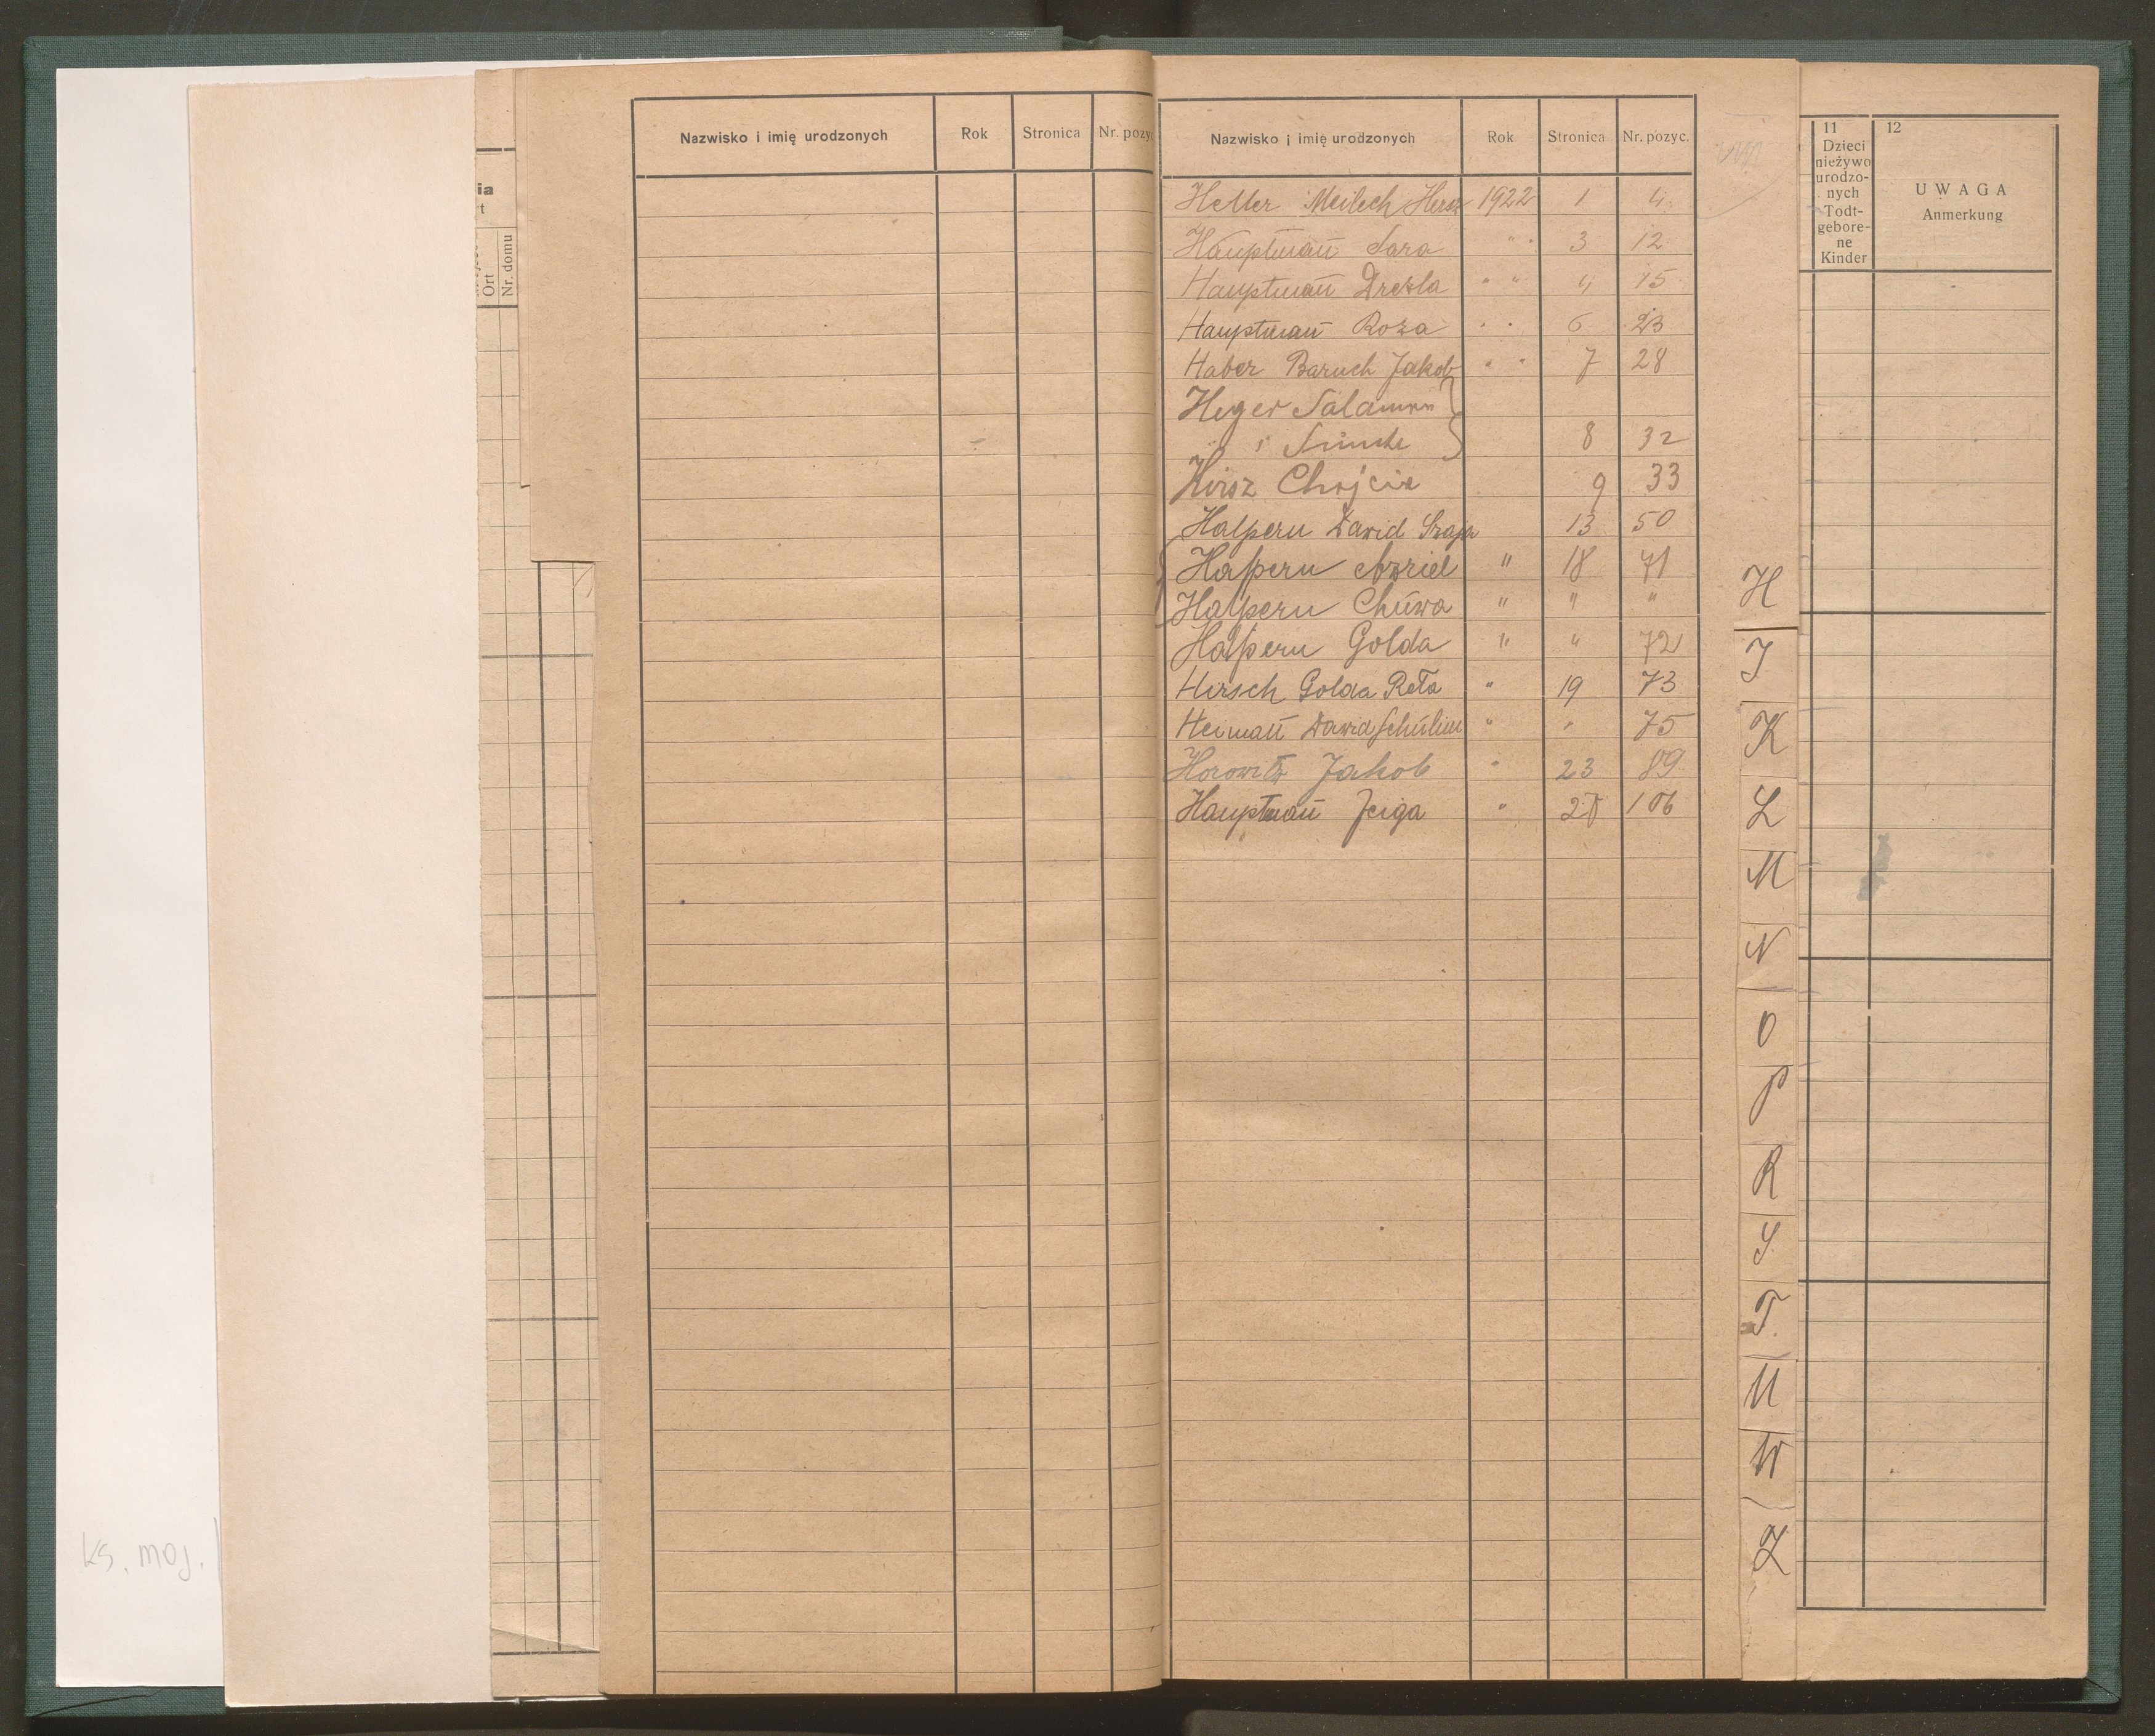 ks. moj.
ia
t
Ort
Nr. domu
Nazwisko i imię urodzonych Rok Stronica Nr. pozyc
Nazwisko i imię urodzonych Rok Stronica Nr. pozyc.
Heller Meilech Hersz 1922 1 4
Hauptman̄ Sara " " 3 12
Hauptman̄ Drezla " " 4 15
Hauptman̄ Roza " " 6 23
Haber Baruch Jakob " " 7 28
Heger Salamon
" i 8 32
Hirsz 9 33
Halpern Dawid Szaja 13 50
Halpern Azriel " 18 71
Halpern Chuwa " " "
Halpern Golda " " 72
Hirsch Golda Reta " 19 73
Heiman̄ Dawid Schulim " " 75
Horowitz Jakob " 23 89
Hauptman̄ Feiga " 27 106
H
I
K
L
M
N
O
P
R
S
T.
U
W
Z
11
Dzieci
nieżywo
urodzo-
nych
Todt-
gebore-
ne
Kinder
12
UWAGA
Anmerkung